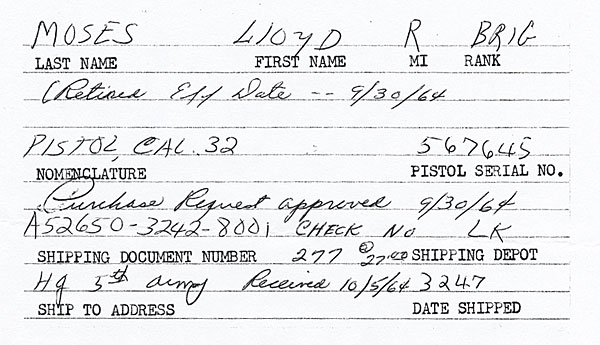 MOSES LLOYD R BRIG
LAST NAME FIRST NAME MI RANK
(Retired Eff Date -- 9/30/64
PISTOL, CAL .32 567645
NOMENCLATURE PISTOL SERIAL NO.
Purchase Request approved 9/30/64
A52650-3242-8001 CHECK No LK
SHIPPING DOCUMENT NUMBER 277 @ 27.00 SHIPPING DEPOT
Hq 5th Army Received 10/5/64 3247
SHIP TO ADDRESS DATE SHIPPED